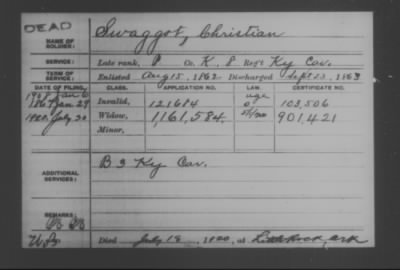 DEAD
NAME OF SOLDIER: Swaggot, Christian
SERVICE: Late rank, P Co. K, 8 Reg't Ky Cav.
TERM OF SERVICE: Enlisted Aug 15, 1862 Discharged Sept 23, 1863
DATE OF FILING. CLASS. APPLICATION NO. LAW. CERTIFICATE NO.
1908 Jan 6 age
1867 Jan 29 Invalid, 121684 103,506
1920 July 30 Widow, 1,161,584 901,421
Minor,
ADDITIONAL SERVICES: B 3 Ky Cav.
REMARKS:
Died July 18, 1920, at Little Rock, Ark